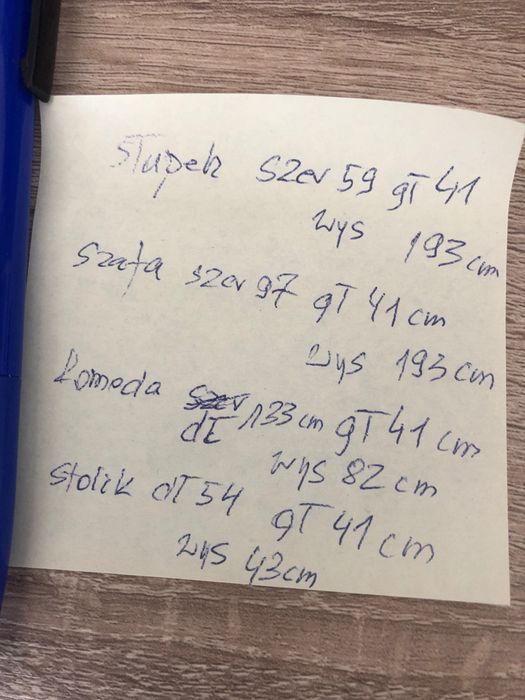 słupek szer 59 gł 41
wys 193 cm
szafa szer 97 gł 41 cm
wys 193 cm
komoda szer 133 cm gł 41 cm
dł
wys 82 cm
stolik dł 54 gł 41 cm
wys 43 cm